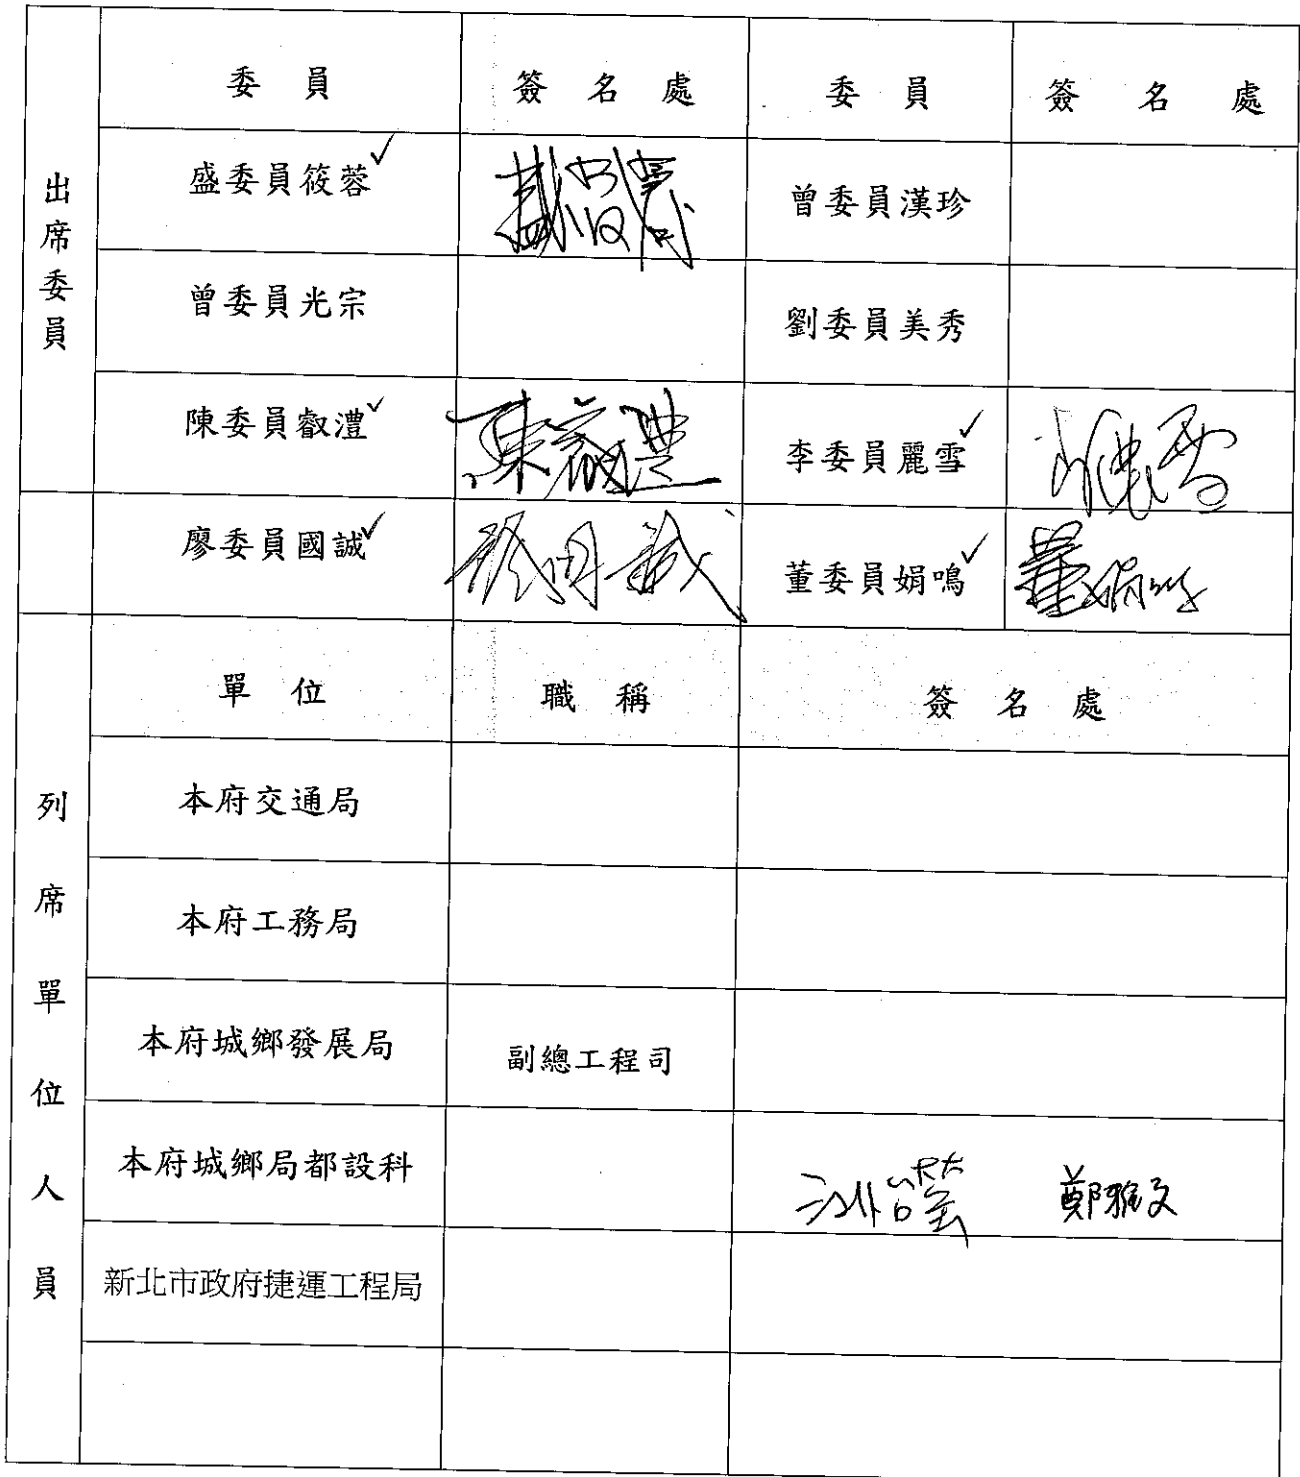 出席委員
委員 簽名處 委員 簽名處
盛委員筱蓉✓ 盛筱蓉 曾委員漢珍
曾委員光宗 劉委員美秀
陳委員叡澧✓ 陳叡澧 李委員麗雪✓ 李麗雪
廖委員國誠✓ 廖國誠 董委員娟鳴✓ 董娟鳴
列席單位人員
單位 職稱 簽名處
本府交通局
本府工務局
本府城鄉發展局 副總工程司
本府城鄉局都設科 鄭雅文
新北市政府捷運工程局